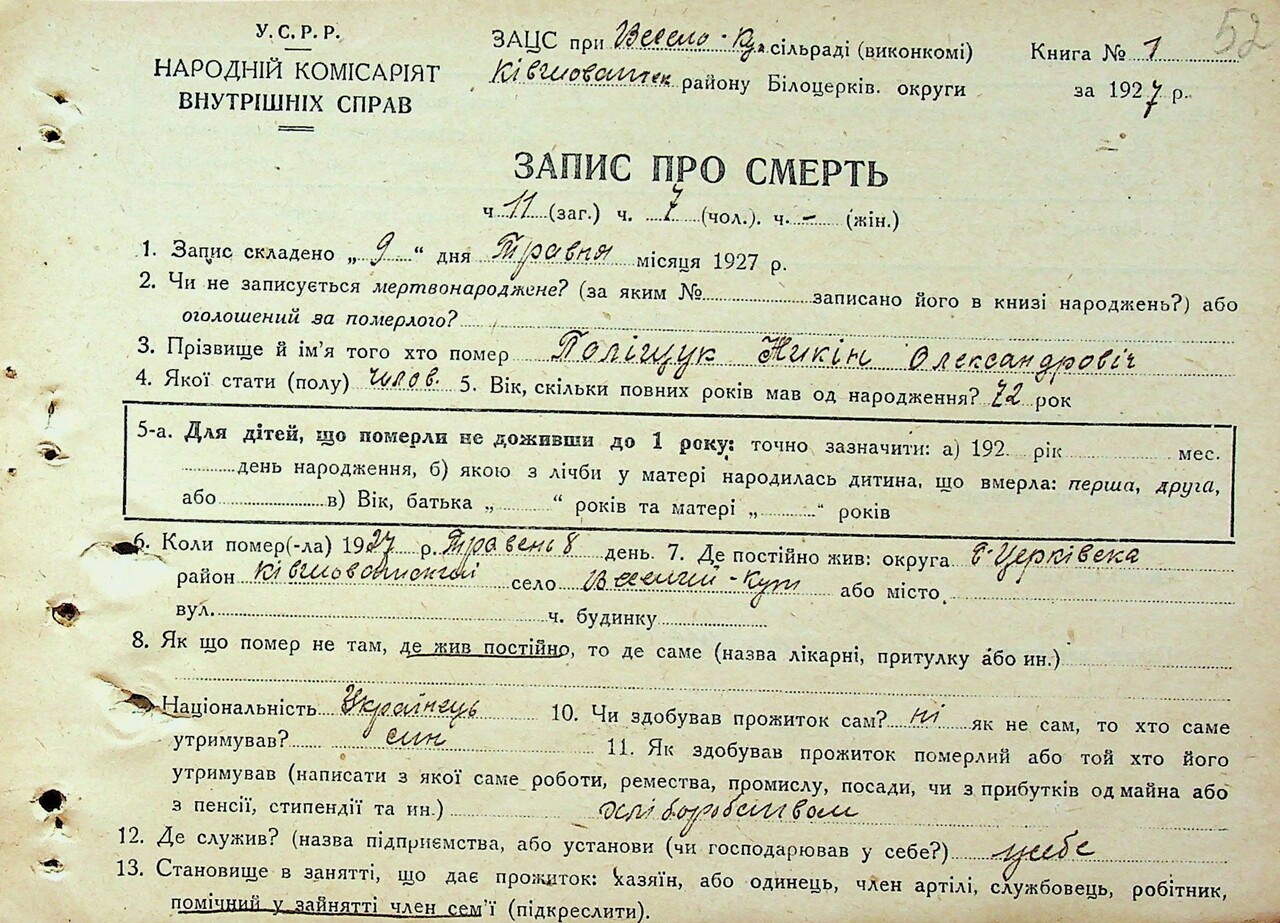 52
У.С.Р.Р.
НАРОДНІЙ КОМІСАРІЯТ
ВНУТРІШНІХ СПРАВ
ЗАЦС при Весело-Кут. сільраді (виконкомі)
Ківшоватск району Білоцерків. округи
Книга № 1
за 1927 р.
ЗАПИС ПРО СМЕРТЬ
ч 11 (заг.) ч. 7 (чол.). ч. - (жін.)
1. Запис складено „ 9 “ дня Травня місяця 1927 р.
2. Чи не записується мертвонароджене? (за яким № записано його в книзі народжень?) або
оголошений за померлого?
3. Прізвище й ім'я того хто помер Поліщук Никін Олександровіч
4. Якої стати (полу) чилов. 5. Вік, скільки повних років мав од народження? 72 рок
5-а. Для дітей, що померли не доживши до 1 року: точно зазначити: а) 192 рік мес.
день народження, б) якою з лічби у матері народилась дитина, що вмерла: перша, друга,
або в) Вік, батька „ “ років та матері „ “ років
6. Коли помер(-ла) 1927 р. Травень 8 день. 7. Де постійно жив: округа Б-Церківска
район Ківшоватский село Веселий-Кут або місто
вул. ч. будинку
8. Як що помер не там, де жив постійно, то де саме (назва лікарні, притулку або ин.)
Національність Українець 10. Чи здобував прожиток сам? ні як не сам, то хто саме
утримував? син 11. Як здобував прожиток померлий або той хто його
утримував (написати з якої саме роботи, ремества, промислу, посади, чи з прибутків од майна або
з пенсії, стипендії та ин.) хліборобством
12. Де служив? (назва підприємства, або установи (чи господарював у себе?) усебе
13. Становище в занятті, що дає прожиток: хазяїн, або одинець, член артілі, службовець, робітник,
помічний у зайнятті член сем'ї (підкреслити).